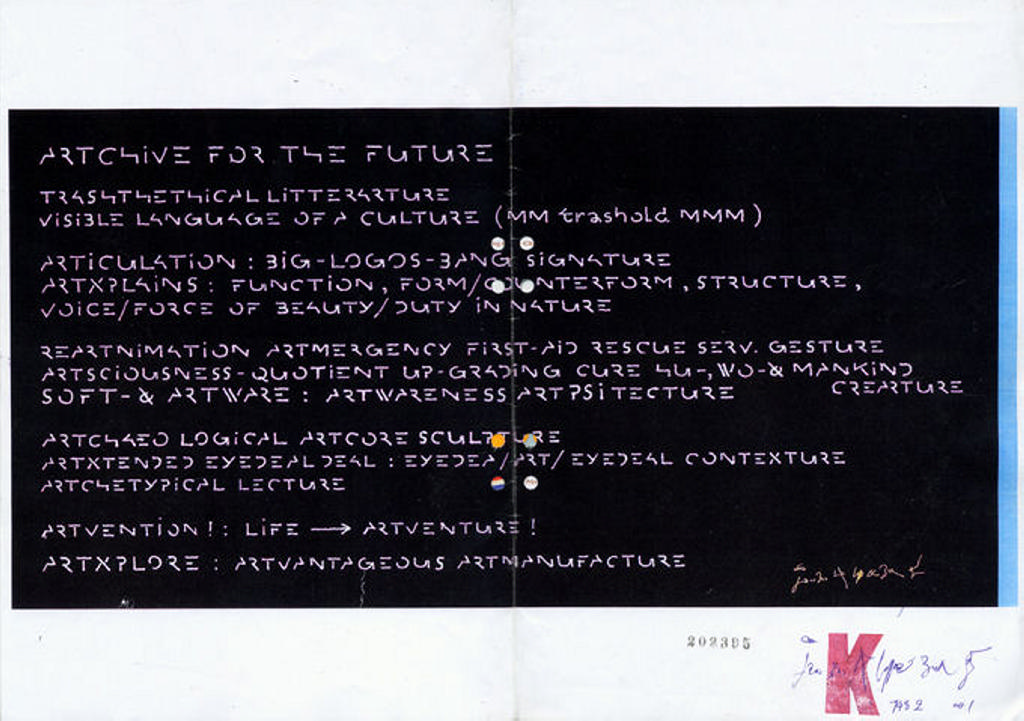 ARTCHIVE FOR THE FUTURE
TRASHTHETHICAL LITTERARTURE
VISIBLE LANGUAGE OF A CULTURE (MM trashold MMM)
ARTICULATION : BIG-LOGOS-BANG SIGNATURE
ARTXPLAINS : FUNCTION, FORM/COUNTERFORM, STRUCTURE,
VOICE/FORCE OF BEAUTY/DUTY IN NATURE
REARTNIMATION ARTMERGENCY FIRST-AID RESCUE SERV. GESTURE
ARTSCIOUSNESS-QUOTIENT UP-GRADING CURE HU-, WO- & MANKIND
CREARTURE
SOFT- & ARTWARE : ARTWARENESS ARTPSITECTURE
ARTCHAEO LOGICAL ARTCORE SCULPTURE
ARTXTENDED EYEDEAL DEAL : EYEDEA/ART/EYEDEAL CONTEXTURE
ARTCHETYPICAL LECTURE
ARTVENTION! : LIFE → ARTVENTURE!
ARTXPLORE : ARTVANTAGEOUS ARTMANUFACTURE
202395
K